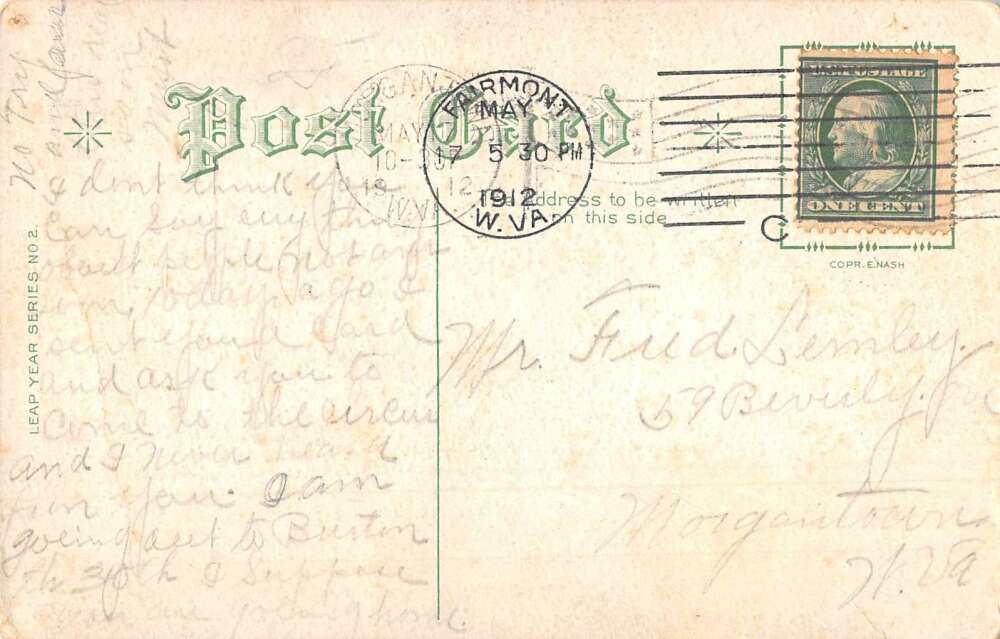 Post Card
The address to be written
on this side
FAIRMONT
MAY
17
5 30 PM
1912
W. VA.
MORGANT
MAY
10-
1912
W.VA
C
U.S. POSTAGE
ONE CENT
COPR. E. NASH
LEAP YEAR SERIES NO 2.
I don't think you
can say any thing
about people not
com. today ago I
sent you a card
and ask you to
come to the circus
and I never heard
from you. I am
going out to Burton
the 30th I suppose
you are going home.
no Try
and
Mr. Fred Lemley.
59 Beverly
Morgantown
W. Va